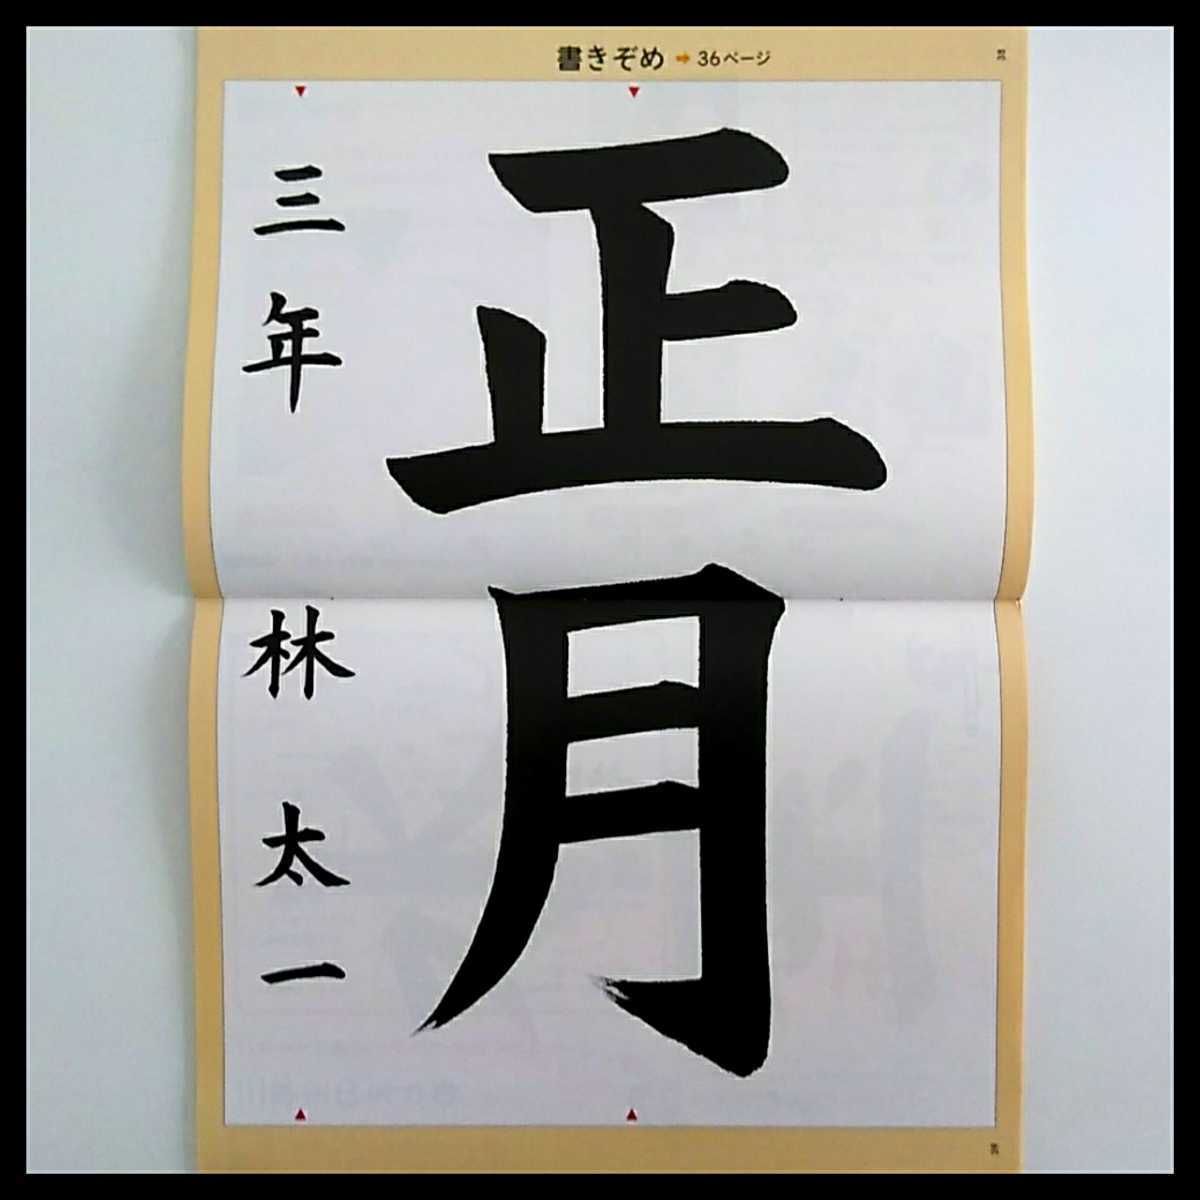 書きぞめ➡36ページ
正月
三年 林 太一